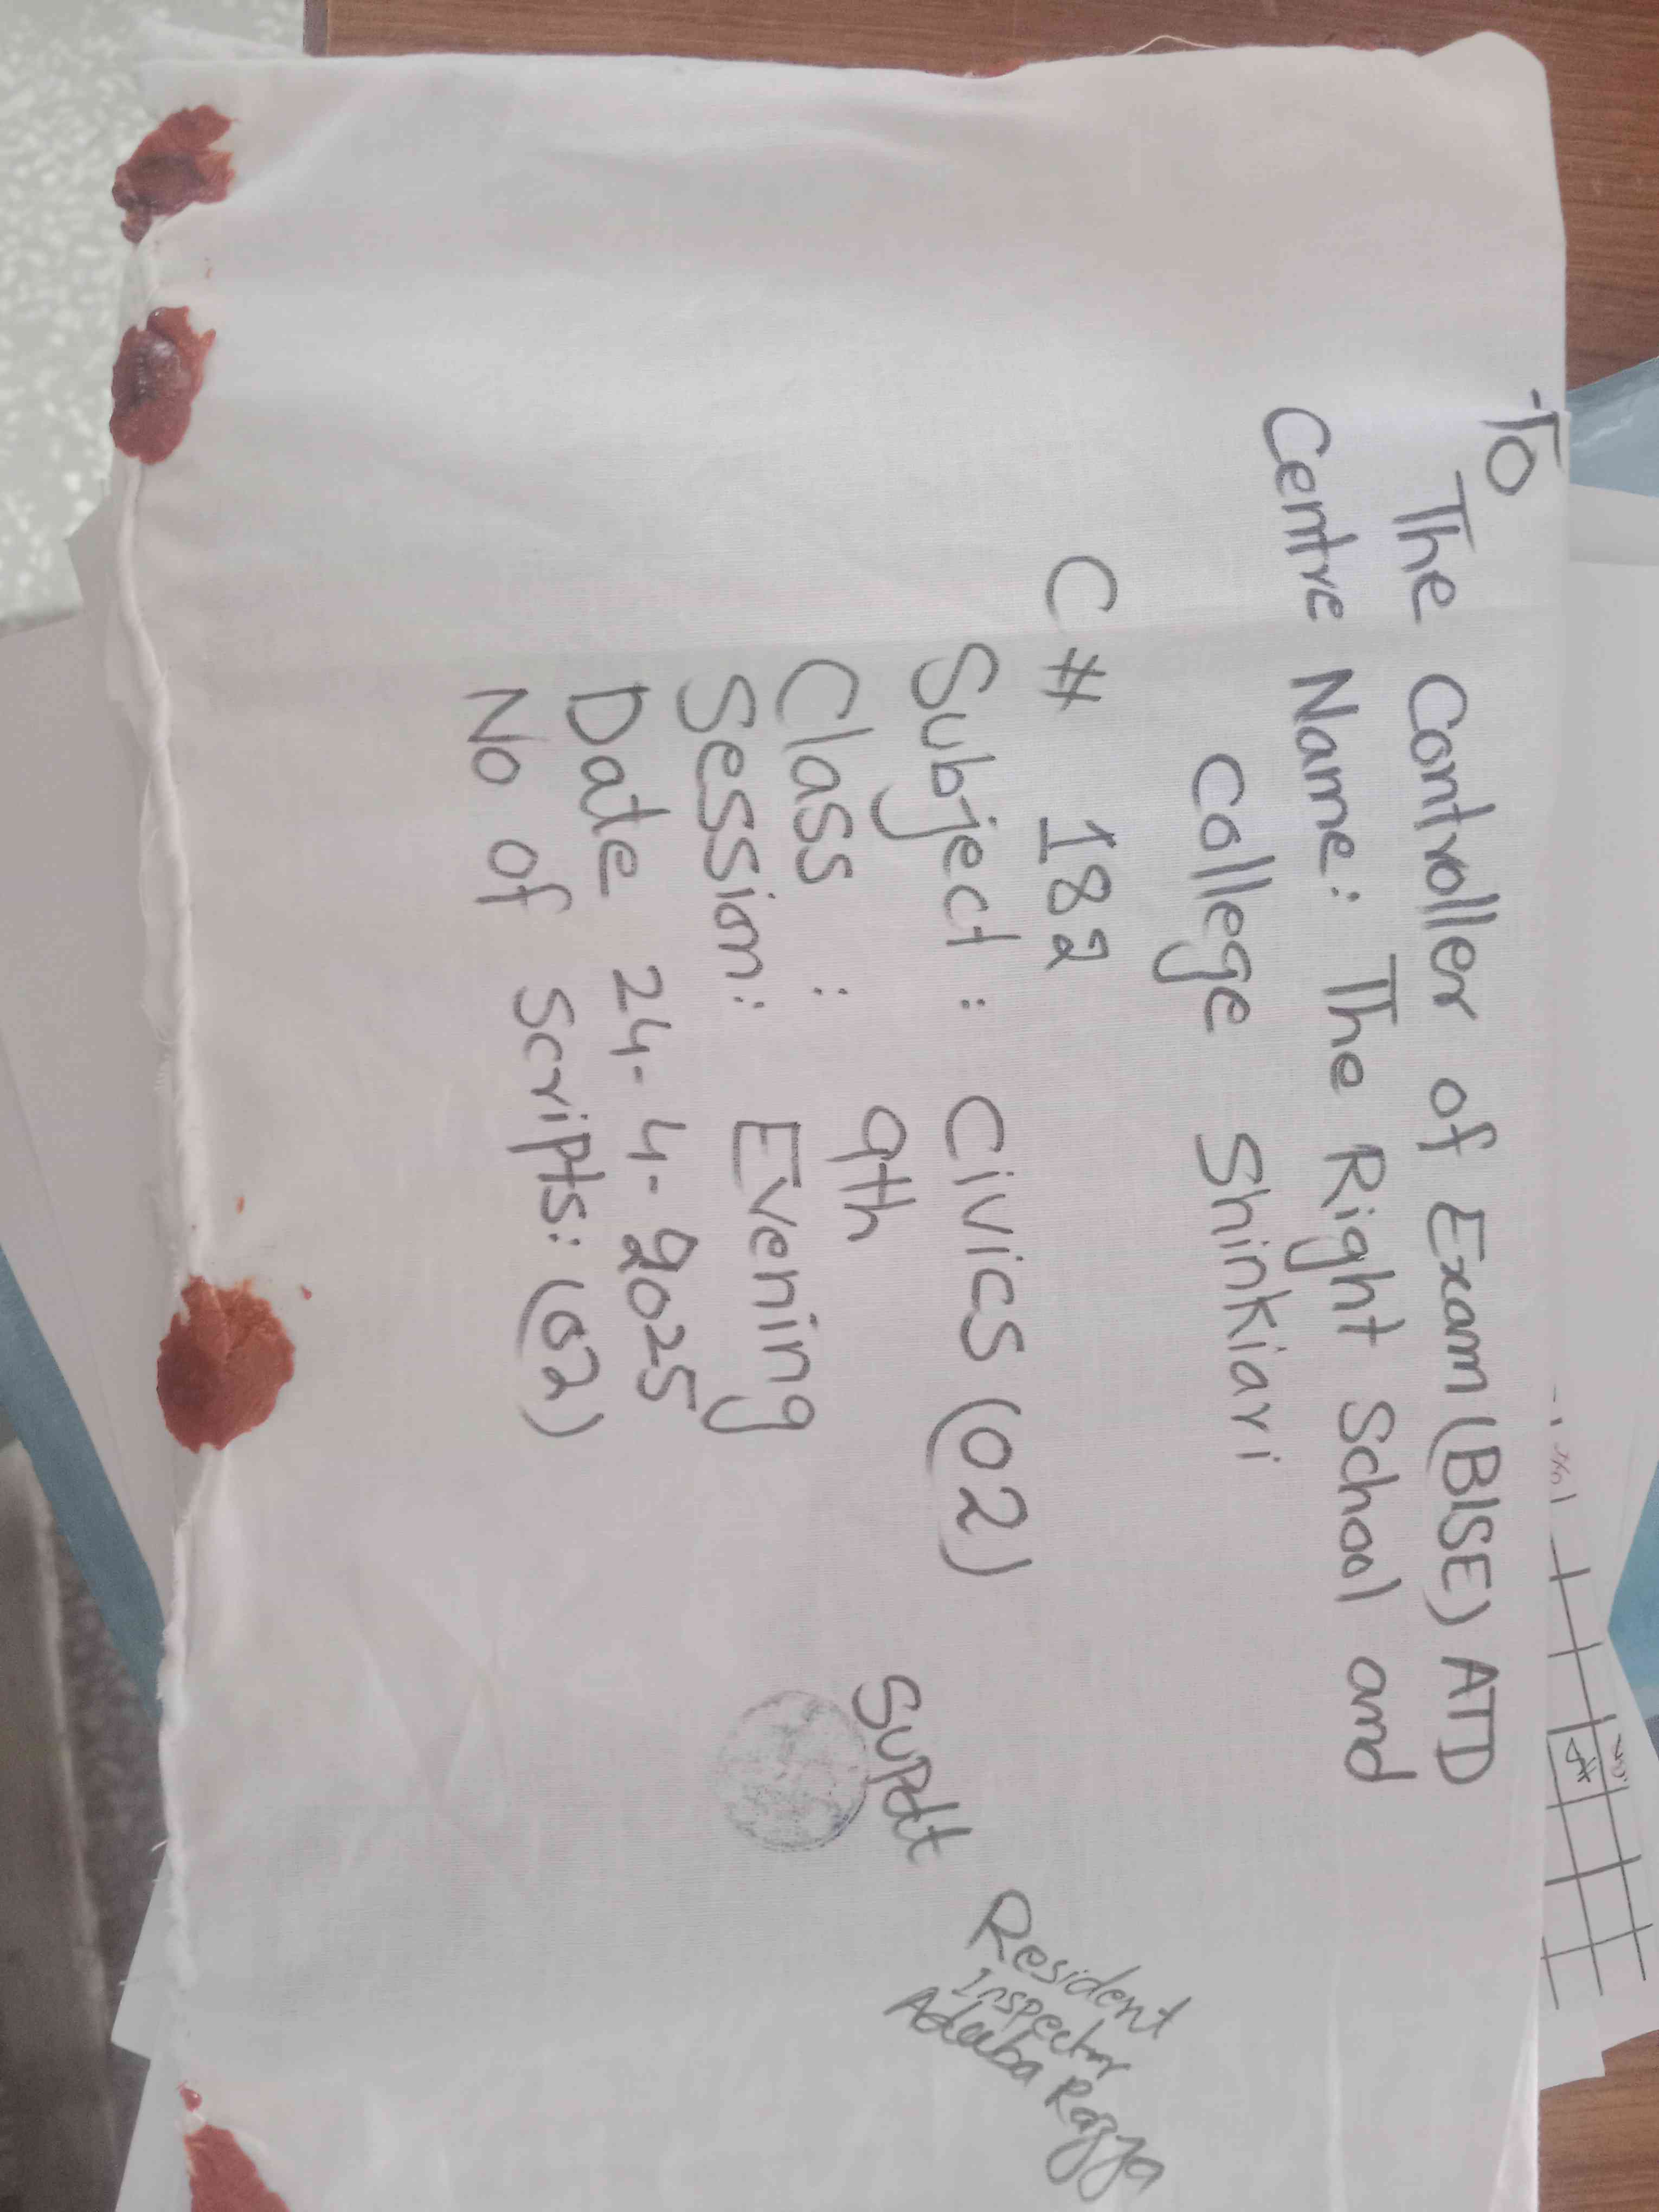 To
The Controller of Exam (BISE) ATD
Centre Name: The Right School and
College Shinkiari
C # 182
Subject : Civics (02)
Class : 9th
Session: Evening
Date 24-4-2025
No of Scripts: (02)
Supdt
Resident
Inspector